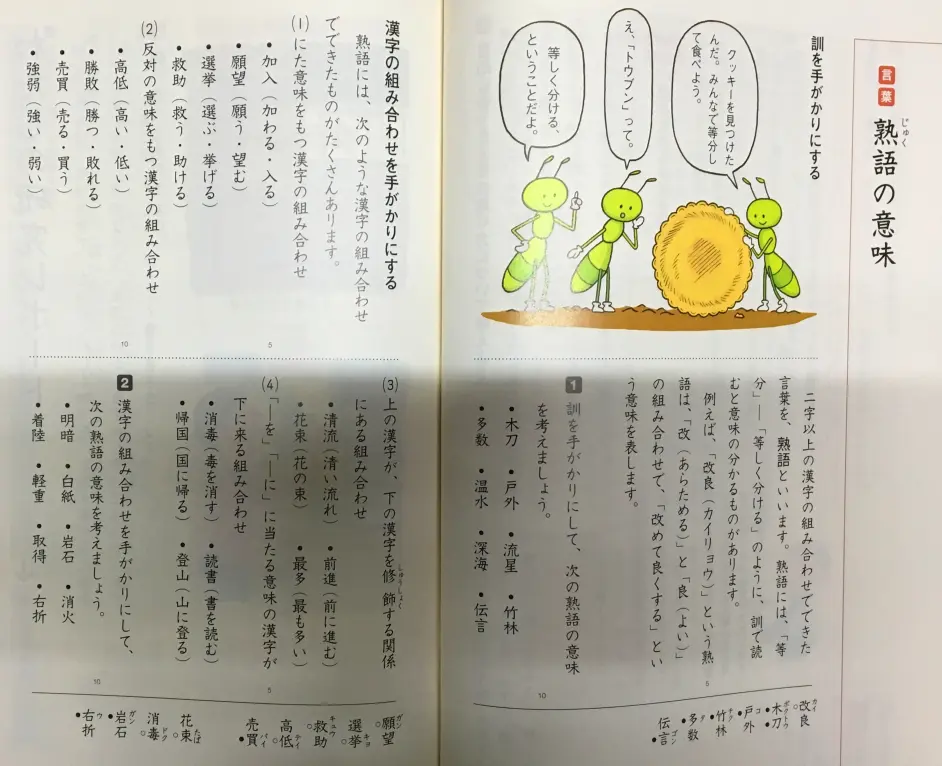 言葉
熟語の意味
じゅく
訓を手がかりにする
クッキーを見つけた
んだ。みんなで等分し
て食べよう。
え、「トウブン」って。
等しく分ける、
ということだよ。
二字以上の漢字の組み合わせでできた
言葉を、熟語といいます。熟語には、「等
分」―「等しく分ける」のように、訓で読
むと意味の分かるものがあります。
例えば、「改良(カイリョウ)」という熟
語は、「改(あらためる)」と「良(よい)」
の組み合わせで、「改めて良くする」とい
う意味を表します。
5
1 訓を手がかりにして、次の熟語の意味
を考えましょう。
・木刀 ・戸外 ・流星 ・竹林
・多数 ・温水 ・深海 ・伝言
10
改良 カイ
木刀 ボクトウ
戸外 コ
竹林 チク
多数 タ
伝言 ゴン
漢字の組み合わせを手がかりにする
熟語には、次のような漢字の組み合わせ
でできたものがたくさんあります。
(1) にた意味をもつ漢字の組み合わせ
・加入(加わる・入る)
・願望(願う・望む)
・選挙(選ぶ・挙げる)
・救助(救う・助ける)
(2) 反対の意味をもつ漢字の組み合わせ
・高低(高い・低い)
・勝敗(勝つ・敗れる)
・売買(売る・買う)
・強弱(強い・弱い)
5
10
(3) 上の漢字が、下の漢字を修飾する関係
しゅうしょく
にある組み合わせ
・清流(清い流れ) ・前進(前に進む)
・花束(花の束) ・最多(最も多い)
(4) 「―を」「―に」に当たる意味の漢字が
下に来る組み合わせ
・消毒(毒を消す) ・読書(書を読む)
・帰国(国に帰る) ・登山(山に登る)
2 漢字の組み合わせを手がかりにして、
次の熟語の意味を考えましょう。
・明暗 ・白紙 ・岩石 ・消火
・着陸 ・軽重 ・取得 ・右折
5
10
願望 ガン
選挙 キョ
救助 キュウ
高低 テイ
売買 バイ
花束 たば
消毒 ドク
岩石 ガン
右折 ウ